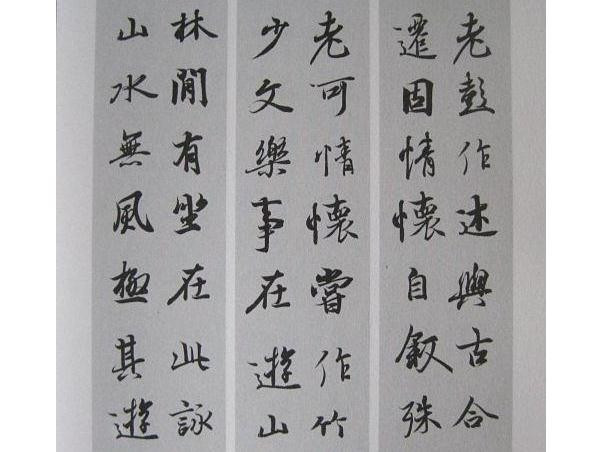 老彭作述與古合
遷固情懷自叙殊
老可情懷嘗作竹
少文樂事在遊山
林閒有坐在此詠
山水無風極其遊